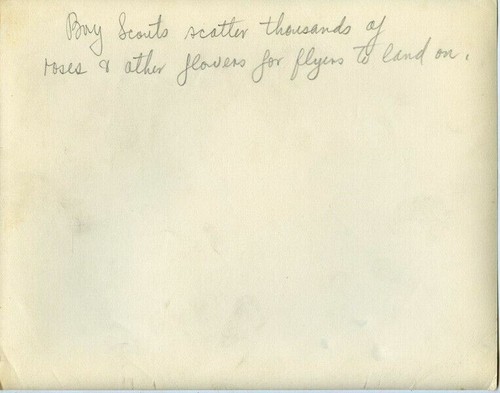 Boy Scouts scatter thousands of
roses & other flowers for flyers to land on.